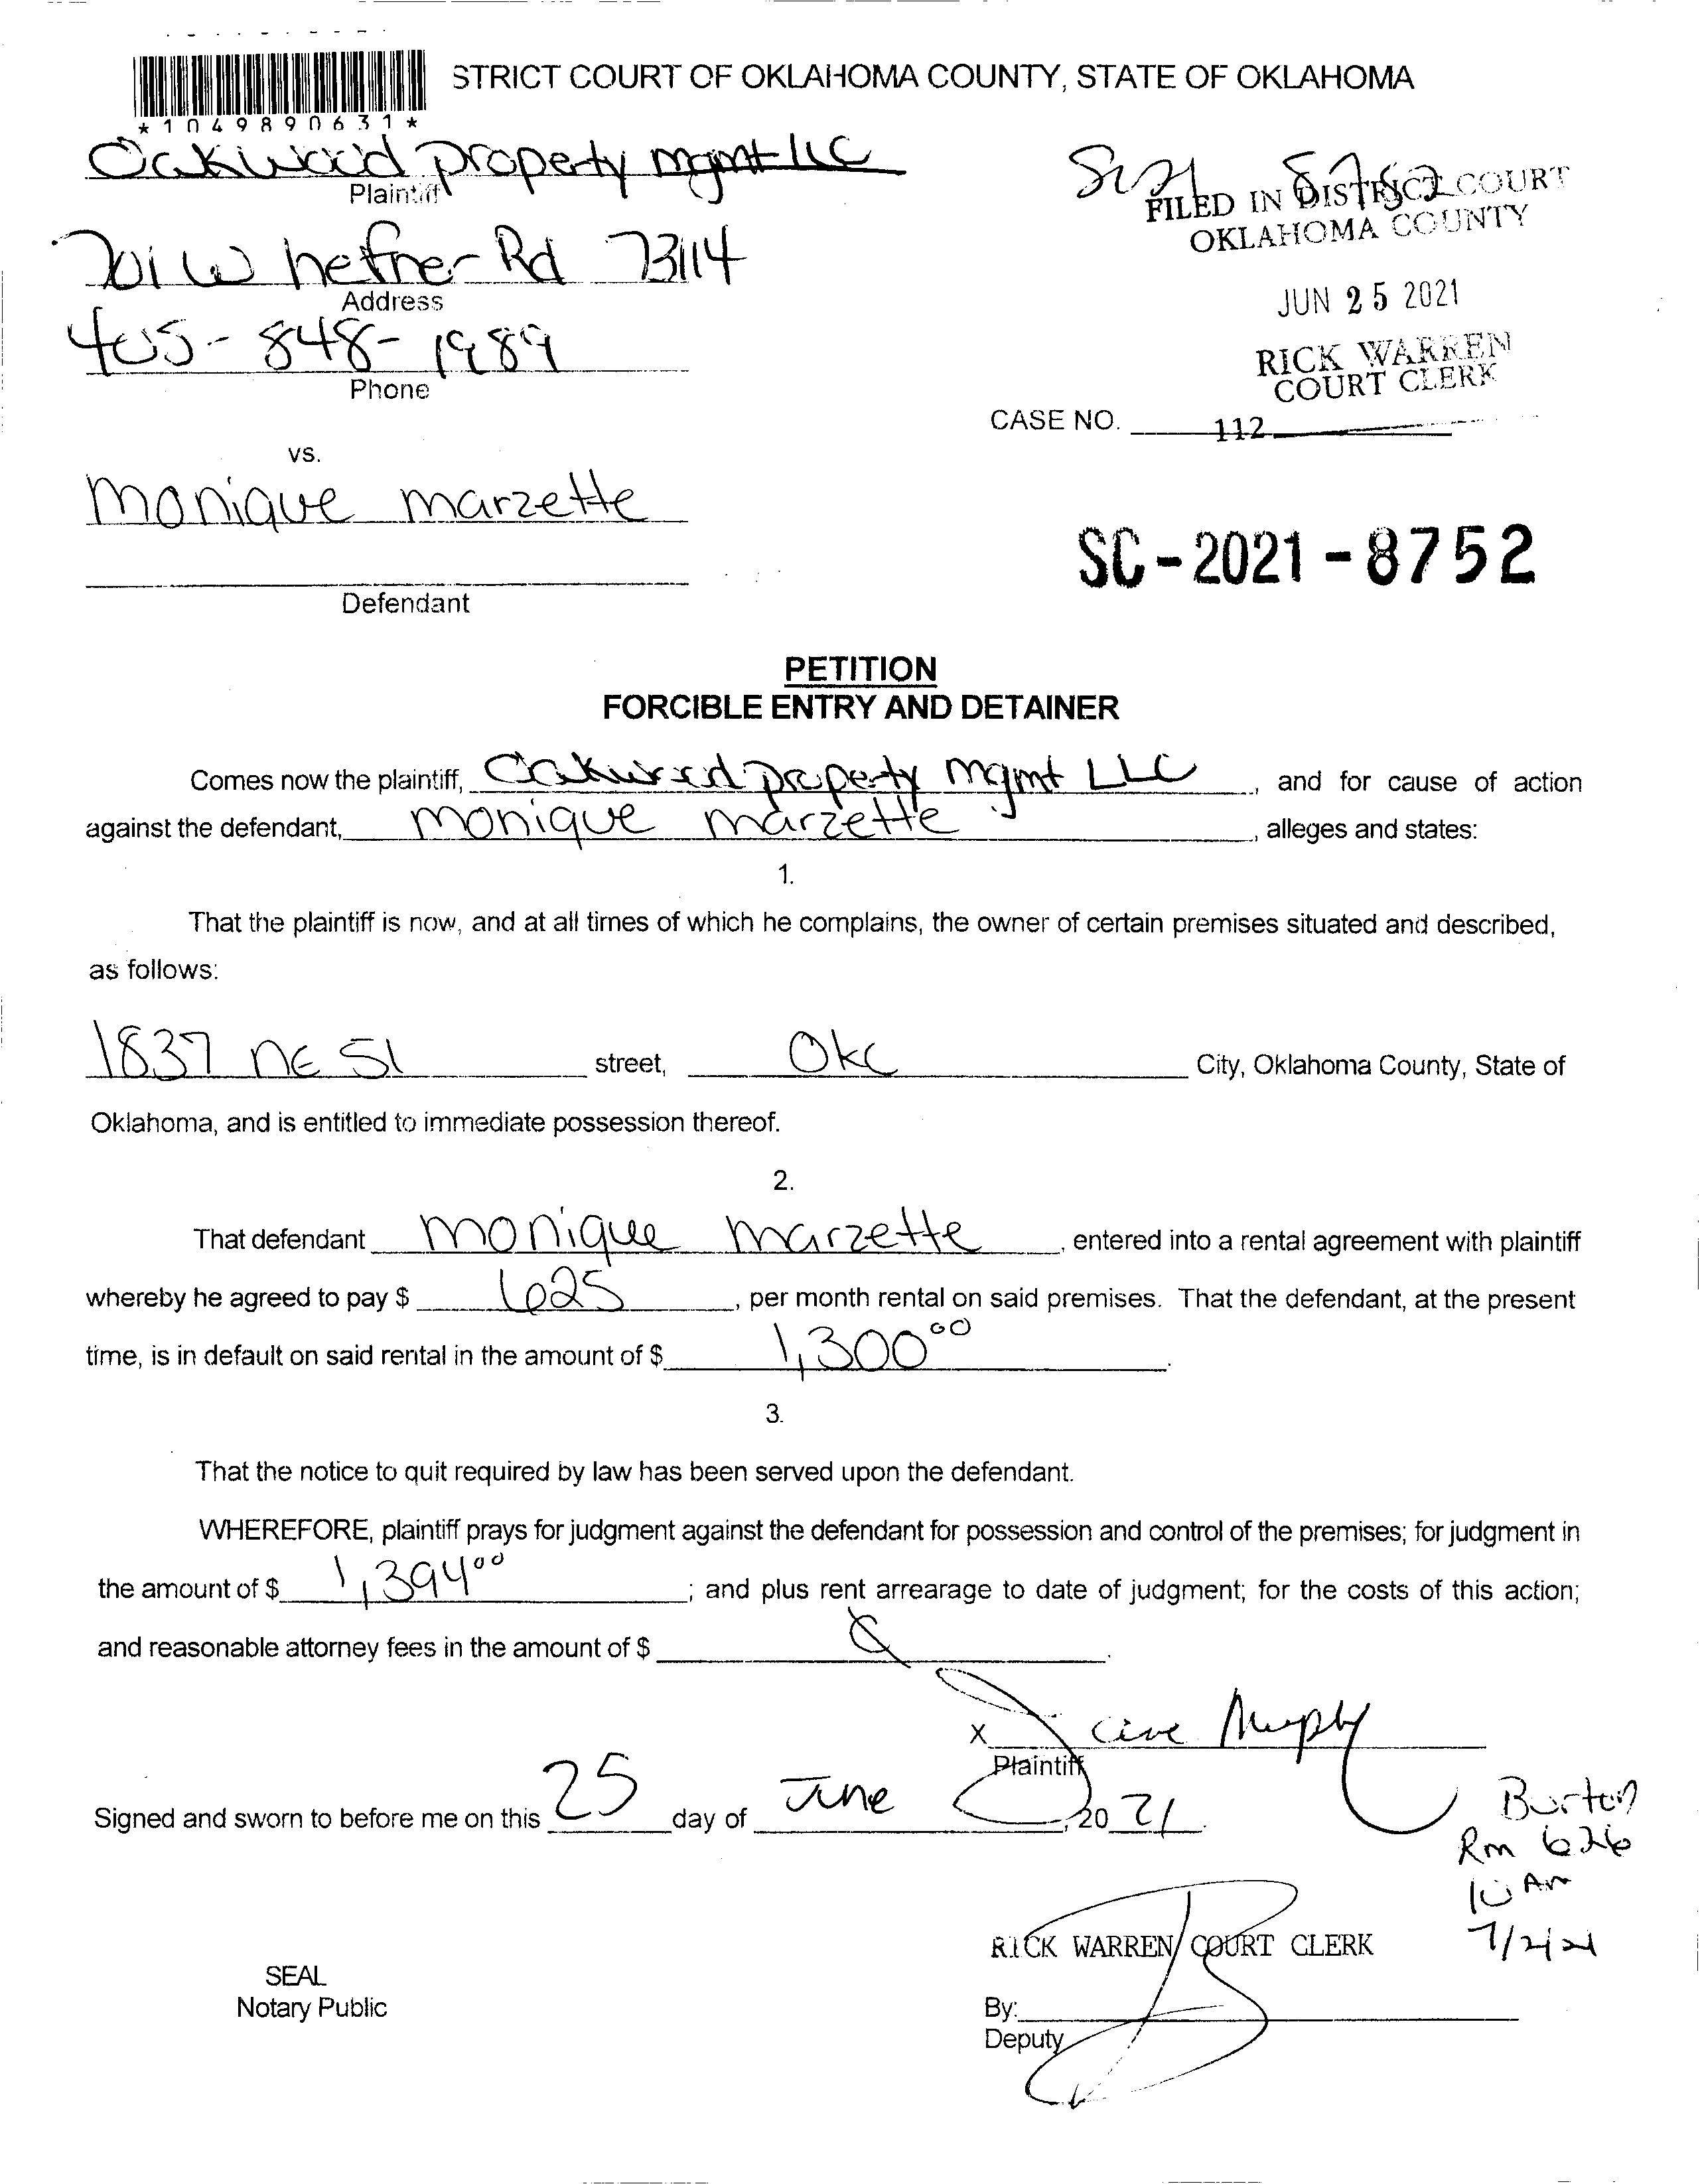 STRICT COURT OF OKLAHOMA COUNTY, STATE OF OKLAHOMA
*1049890631*
Oakwood property mgmt llc
Plaintiff
SC21 8752
FILED IN DISTRICT COURT
OKLAHOMA COUNTY
701 W hefner Rd 73114
Address
JUN 25 2021
405-848-1989
Phone
RICK WARREN
COURT CLERK
CASE NO. 112
vs.
monique marzette
SC-2021-8752
Defendant
PETITION
FORCIBLE ENTRY AND DETAINER
Comes now the plaintiff, Oakwood property mgmt LLC, and for cause of action
against the defendant, monique marzette, alleges and states:
1.
That the plaintiff is now, and at all times of which he complains, the owner of certain premises situated and described,
as follows:
1837 NE 51 street, Okc City, Oklahoma County, State of
Oklahoma, and is entitled to immediate possession thereof.
2.
That defendant monique marzette, entered into a rental agreement with plaintiff
whereby he agreed to pay $ 625, per month rental on said premises. That the defendant, at the present
time, is in default on said rental in the amount of $ 1,300 00.
3.
That the notice to quit required by law has been served upon the defendant.
WHEREFORE, plaintiff prays for judgment against the defendant for possession and control of the premises; for judgment in
the amount of $ 1,394 00; and plus rent arrearage to date of judgment; for the costs of this action;
and reasonable attorney fees in the amount of $
X Murphy
Plaintiff
Signed and sworn to before me on this 25 day of June, 20 21.
Burton
Rm 626
10 Am
7/2/21
RICK WARREN COURT CLERK
SEAL
Notary Public
By:
Deputy